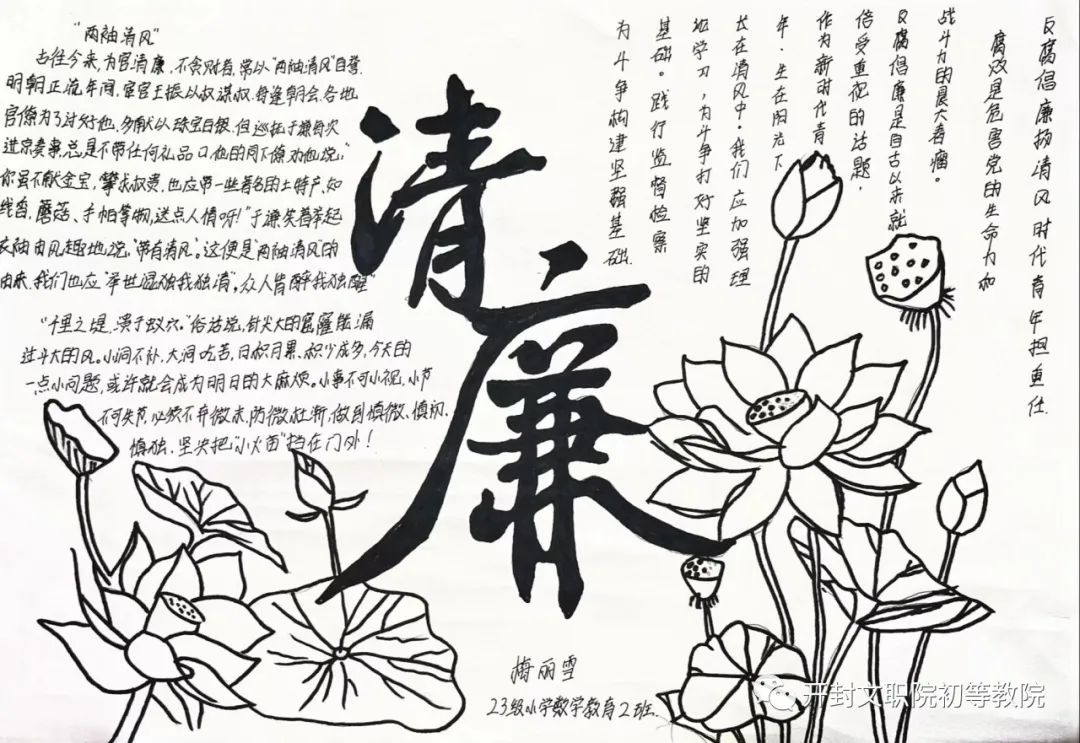 “两袖清风”
古往今来,为官清廉,不贪财者,常以“两袖清风”自誉.
明朝正统年间,宦官王振以权谋权.每逢朝会,各地
官僚为了讨好他,多献以珠宝白银.但巡抚于谦每次
进京奏事,总是不带任何礼品。他的同下僚劝他说:“
你虽不献金宝,攀求权贵,也应带一些著名的土特产,如
线香、蘑菇、手帕等物,送点人情呀!”于谦笑着举起
衣袖由风趣地说,“带有清风”.这便是“两袖清风”的
由来.我们也应“举世混独我独清”,众人皆醉我独醒”
“千里之堤,溃于蚁穴.”俗话说,针尖大的窟窿能漏
过斗大的风.小洞不补,大洞吃苦,日积月累,积少成多,今天的
一点小问题,或许就会成为明日的大麻烦.小事不可小视,小节
不可失节,必须不弃微末,防微杜渐,做到慎微、慎初、
慎独,坚决把“小火苗”挡在门外!
清廉
反腐倡廉扬清风时代青年担重任
腐败是危害党的生命力和
战斗力的最大毒瘤。
反腐倡廉是自古以来就
倍受重视的话题.
作为新时代青
年.生在阳光下
长在清风中.我们应加强理
论学习,为斗争打好坚实的
基础。践行监督检察
为斗争构建坚强基础.
梅丽雪
23级小学数学教育2班.
开封文职院初等教院